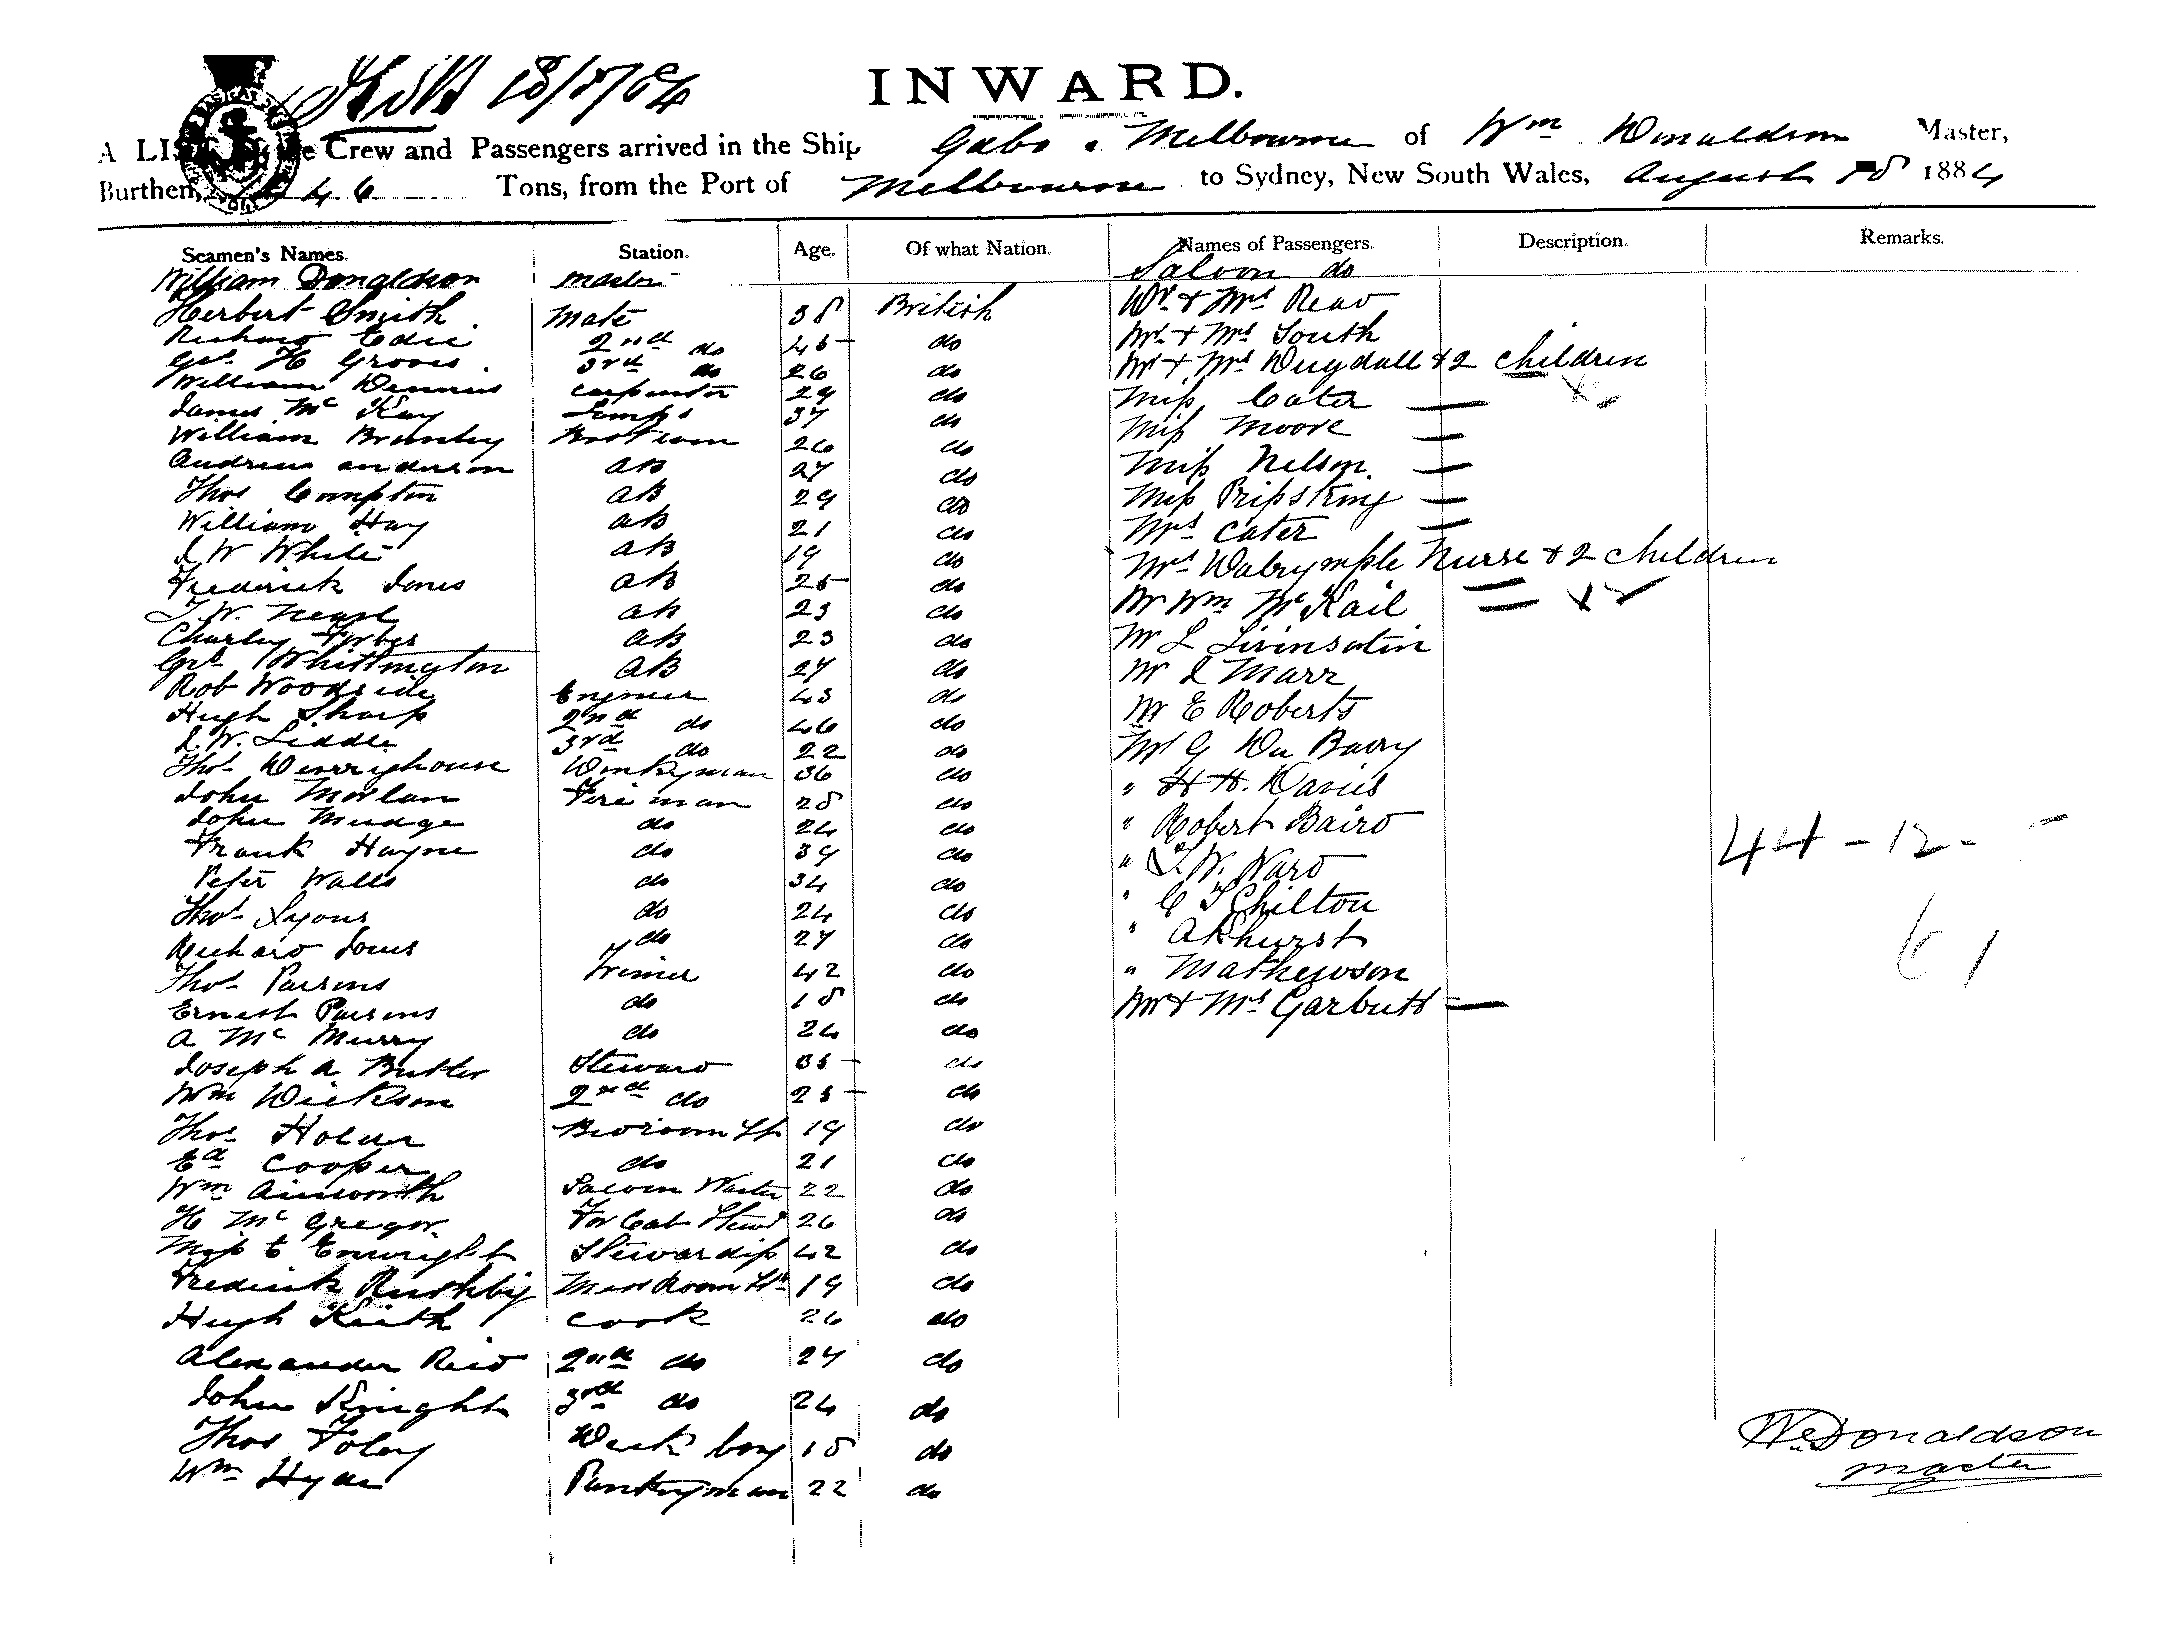 18/8/84
INWARD.
A LI e Crew and Passengers arrived in the Ship Gabo Melbourne of Wm Donaldson Master,
Burthen, 46 Tons, from the Port of Melbourne to Sydney, New South Wales, August 18 1884
Seamen's Names. Station. Age. Of what Nation. Names of Passengers. Description. Remarks.
William Donaldson Master Saloon do
Herbert Smith Mate 38 British Mr & Mrs Read
Richard Edie 2nd do 45 do Mr & Mrs South
Geo H Groves 3rd do 26 do Mr & Mrs Dugdall & 2 children
William Dennis Carpenter 29 do Miss Cater
James McKay Lamps 37 do Miss Moore
William Brumby 26 do Miss Nelson
Andrew Anderson AB 27 do Miss
Thos Compton AB 29 do Mrs Cater
William Hay AB 21 do Mrs Dalrymple Nurse & 2 children
J W White AB 19 do Mr Wm McKail
Frederick Jones AB 25 do Mr L
T. W. AB 23 do Mr J Marr
Charley Forbes AB 23 do Mr E Roberts
Geo Whittington AB 27 do Mr G Du Barry
Rob Woodside Engineer 43 do " H H. Davies
Hugh Sharp 2nd do 46 do " Robert Baird
J. W. Liddle 3rd do 22 do " T. W. Ward
Thos Donkyman 36 do " C T Chilton
John Fireman 28 do " Akhurst
John Mudge do 24 do " Mathewson
Frank Hayne do 39 do Mr & Mrs Garbutt
Peter Walls do 34 do
Thos Lyons do 24 do
Richard Jones do 27 do
Thos Parsons Trimer 42 do
Ernest Parsons do 18 do
A McMurry do 24 do
Joseph A Butler Steward 35 do
Wm Dickson 2nd do 25 do
Thos Holder Bedroom St 19 do
Ed Cooper do 21 do
Wm Ainsworth Saloon Waiter 22 do
H McGregor For Cab Stewd 26 do
Miss E Enwright Stewardess 42 do
Frederick Rushby Mess Room St 19 do
Hugh Keith Cook 26 do
Alexander Reid 2nd do 27 do
John Knight 3rd do 24 do
Thos Foley Deck boy 18 do
Wm Hyde Pantryman 22 do
44 - 12 -
61
Wm Donaldson
Master